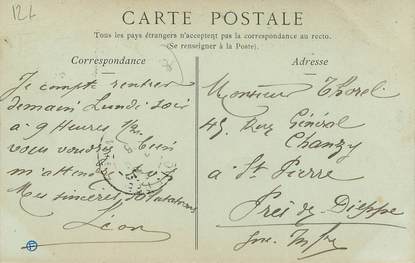 126
CARTE POSTALE
Tous les pays étrangers n'acceptent pas la correspondance au recto.
(Se renseigner à la Poste).
Correspondance
Je compte rentrer
demain Lundi soir
à 9 Heures 1/2
vous voudrez bien
m'attendre
Mes sincères Salutations
Léon
Adresse
Monsieur Thorel
45, Rue Général
Chanzy
à St Pierre
Près de Dieppe
Sne Infre